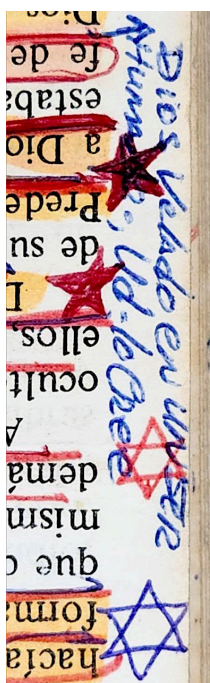 hacía
forma
que
mism
demá
A
oculto
ellos,
de su
Prede
a Dio
estaba
fe de
Dios
Dios Velado en un SER
Ud. lo Cree